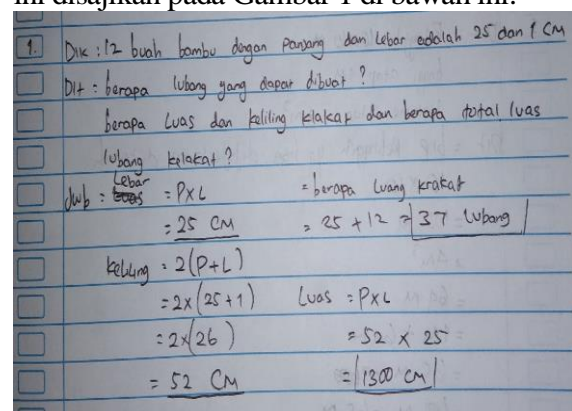 ini disajikan pada Gambar 1 di bawah ini.
1. Dik : 12 buah bambu dengan panjang dan lebar adalah 25 dan 1 CM
Dit : berapa lubang yang dapat dibuat ?
berapa Luas dan keliling klakat dan berapa total luas
lubang kelakat ?
Jwb : Lebar = P x L
= 25 CM
keliling = 2(P+L)
= 2x(25+1)
= 2x(26)
= 52 CM
= berapa luang krakat
= 25 + 12 = 37 lubang
Luas = P x L
= 52 x 25
= 1300 CM